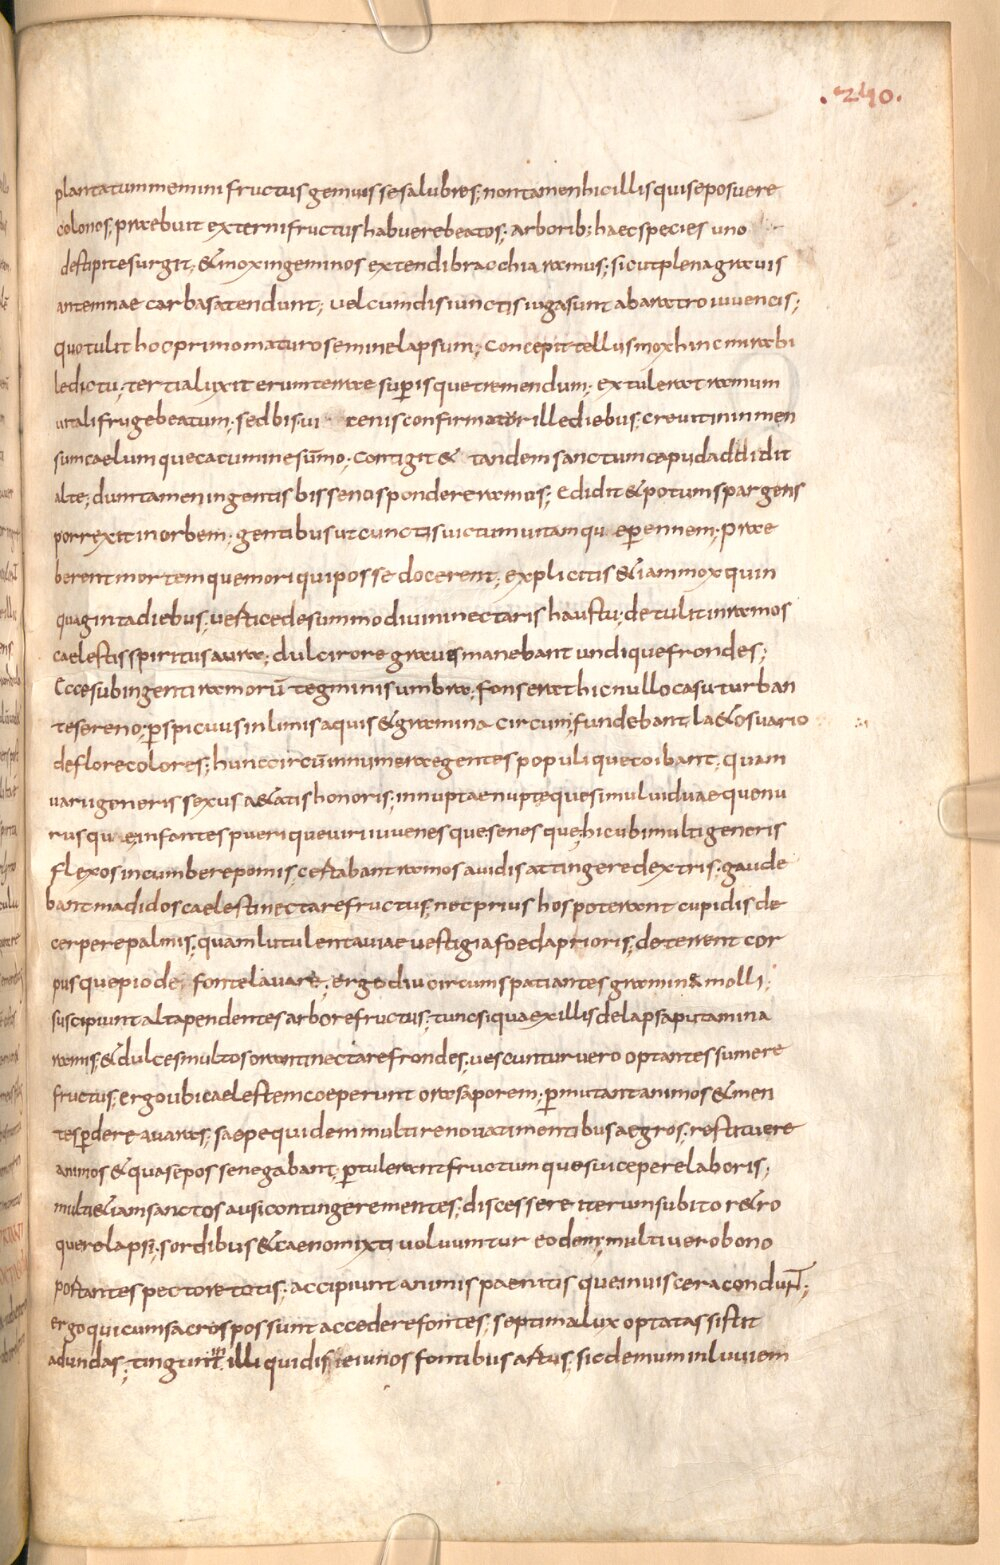 .240.
plantatum memini fructus genuisse salubres; non tamen hic illis qui se posuere
colonos; praebuit externi fructus habuere beatos; arborib; haec species uno
de stipite surgit; & mox in geminos extendi bracchia ramus; sicut plena gravis
antemnae carbasa tendunt; vel cum disiunctis iuga sunt ab aratro iuvencis;
quo tulit hoc primo maturo semine lapsum; concepit tellus mox hinc mirabi
le dictu; tertia lux iterum terrae superisque tremendum; extulerat ramum
vitali fruge beatum; sed bis vi tenis confirmatur ille diebus; crevit in inmen
sum caelumque cacumine sūmo; contigit & tandem sanctum capud addidit
alte; dum tamen ingentis bissenos pondere ramos; edidit & potum spargens
porrexit in orbem; gentibus ut cunctis victum vitam qu e perennem; prae
berent mortem que mori qui posse docerent; explicitis &iam mox quin
quaginta diebus; vestice de summo divini nectaris haustu; detulit in ramos
caelestis spiritus aurae; dulci rore gravis manebant undique frondes;
Ecce sub ingenti ramorū tegminis umbra; fons erat hic nullo casu turban
te sereno; perspicuus inlimis aquis & gramina circum; fundebant l&os vario
de flore colores; hunc circū innumerae gentes populique coibant; quam
varii generis sexus a&atis honoris; innuptae nupteque simul viduaeque nu
rusqu e infantes puerique viri iuvenesque senesque; hic ubi multigeneris
flexos incumbere pomis; cestabant ramos avidis attingere dextris; gaude
bant madidos caelesti nectare fructus; nec prius hos poterant cupidis de
cerpere palmis; quam lutulenta viae vestigia foeda prioris; deterent cor
pusque pio de fonte lavare; ergo diu circum spatiantes gramin& molli;
suscipiunt alta pendentes arbore fructus; tunc siqua ex illis delapsa putamina
ramis; & dulces multo soranti nectare frondes; vescuntur vero optantes sumere
fructus; ergo ubi caelestem coeperunt ora saporem; permutant animos & men
tes perdere avaras; saepe quidem multi renovati mentibus aegros; restituere
animos & quase posse negabant; pertulerant fructumque suscepere laboris;
multi &iam sanctos ausi contingere mentes; discessere iterum subito r&ro
que relapsi; sordibus & caeno mixti volvuntur eodem; multi vero bono
portantes pectore totis; accipiunt animis paenitis que in viscera condunt;
ergo qui cum sacros possunt accedere fontes; septima lux optatas sistit
ad undas; tingunt illi quidis ieiunos fontibus astus; sic demum inluviem